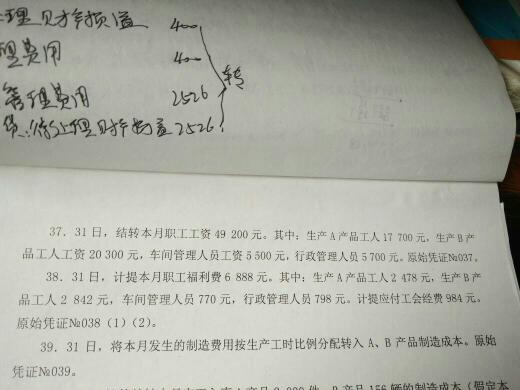 理财产损溢 400
理费用 400
转
管理费用 2526
贷:待处理财产损溢 2526
37. 31 日，结转本月职工工资 49 200 元。其中：生产 A 产品工人 17 700 元，生产 B 产
品工人工资 20 300 元，车间管理人员工资 5 500 元，行政管理人员 5 700 元。原始凭证№037。
38. 31 日，计提本月职工福利费 6 888 元。其中：生产 A 产品工人 2 478 元，生产 B 产
品工人 2 842 元，车间管理人员 770 元，行政管理人员 798 元。计提应付工会经费 984 元。
原始凭证№038（1）（2）。
39. 31 日，将本月发生的制造费用按生产工时比例分配转入 A、B 产品制造成本。原始
凭证№039。